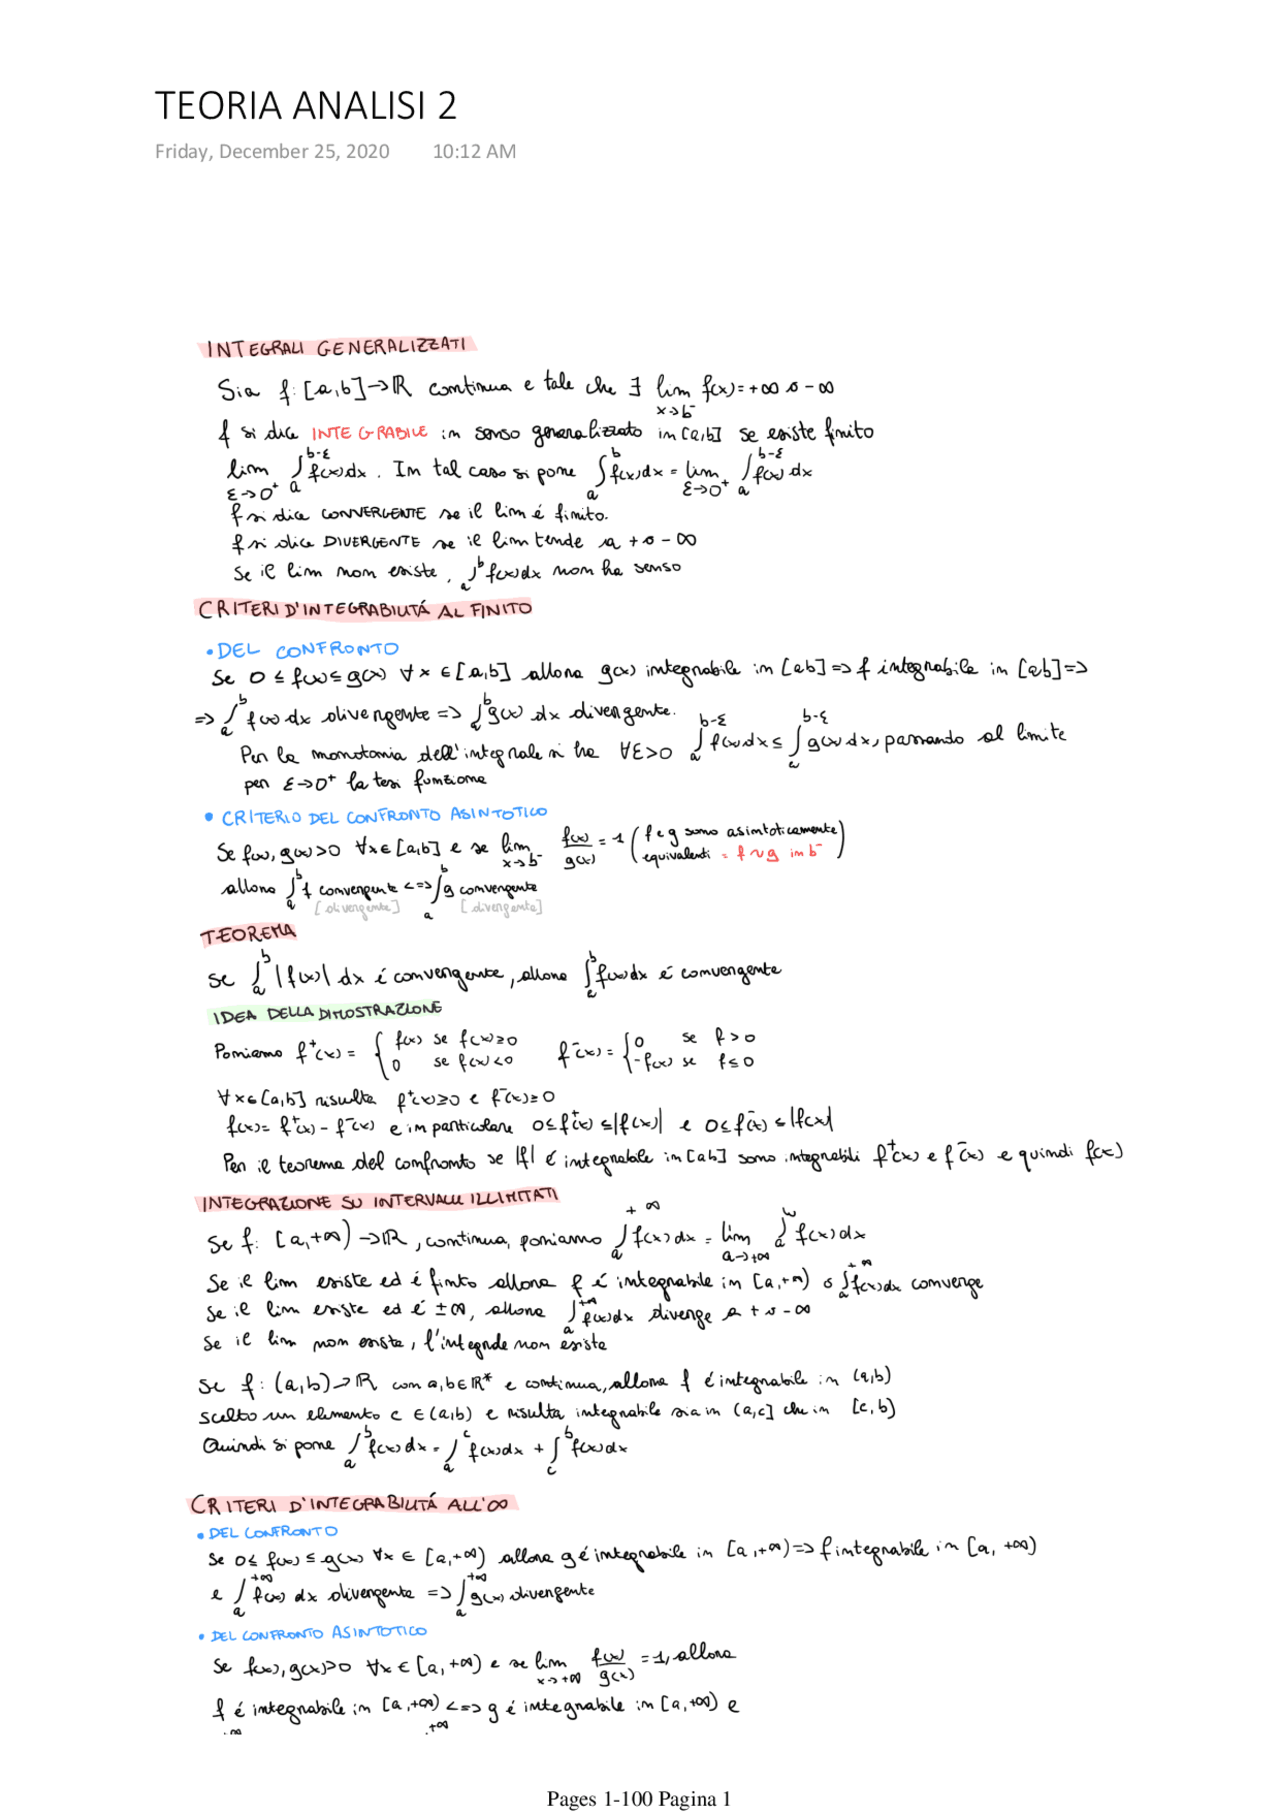 TEORIA ANALISI 2
Friday, December 25, 2020 10:12 AM
INTEGRALI GENERALIZZATI
Sia f: [a,b] → ℝ continua e tale che ∃ lim x→b⁻ f(x) = +∞ o -∞
f si dice INTEGRABILE in senso generalizzato in [a,b] se esiste finito
lim ε→0⁺ ∫_a^{b-ε} f(x)dx . In tal caso si pone ∫_a^b f(x)dx = lim ε→0⁺ ∫_a^{b-ε} f(x)dx
f si dice CONVERGENTE se il lim é finito.
f si dice DIVERGENTE se il lim tende a + o - ∞
Se il lim non esiste, ∫_a^b f(x)dx non ha senso
CRITERI D'INTEGRABILITÁ AL FINITO
• DEL CONFRONTO
Se 0 ≤ f(x) ≤ g(x) ∀x ∈ [a,b] allora g(x) integrabile in [ab] => f integrabile in [ab] =>
=> ∫_a^b f(x) dx divergente => ∫_a^b g(x) dx divergente.
Per la monotonia dell'integrale si ha ∀ε>0 ∫_a^{b-ε} f(x)dx ≤ ∫_a^{b-ε} g(x)dx, passando al limite
per ε→0⁺ la tesi funziona
• CRITERIO DEL CONFRONTO ASINTOTICO
Se f(x), g(x) > 0 ∀x ∈ [a,b] e se lim x→b⁻ f(x)/g(x) = 1 (f e g sono asintoticamente
equivalenti = f ~ g in b⁻)
allora ∫_a^b f convergente <=> ∫_a^b g convergente
[divergente] [divergente]
TEOREMA
Se ∫_a^b |f(x)| dx é convergente, allora ∫_a^b f(x)dx é convergente
IDEA DELLA DIMOSTRAZIONE
Poniamo f⁺(x) = { f(x) se f(x) ≥ 0 f⁻(x) = { 0 se f > 0
0 se f(x) < 0 -f(x) se f ≤ 0
∀x ∈ [a,b] risulta f⁺(x) ≥ 0 e f⁻(x) ≥ 0
f(x) = f⁺(x) - f⁻(x) e in particolare 0 ≤ f⁺(x) ≤ |f(x)| e 0 ≤ f⁻(x) ≤ |f(x)|
Per il teorema del confronto se |f| é integrabile in [ab] sono integrabili f⁺(x) e f⁻(x) e quindi f(x)
INTEGRAZIONE SU INTERVALLI ILLIMITATI
Se f: [a,+∞) → ℝ, continua, poniamo ∫_a^{+∞} f(x)dx = lim a→+∞ ∫_a^w f(x)dx
Se il lim esiste ed é finito allora f é integrabile in [a,+∞) o ∫_a^{+∞} f(x)dx converge
Se il lim esiste ed é ±∞, allora ∫_a^{+∞} f(x)dx diverge a + o - ∞
Se il lim non esiste, l'integrale non esiste
Se f: (a,b) → ℝ con a,b ∈ ℝ* e continua, allora f é integrabile in (a,b)
scelto un elemento c ∈ (a,b) e risulta integrabile sia in (a,c] che in [c,b)
Quindi si pone ∫_a^b f(x)dx = ∫_a^c f(x)dx + ∫_c^b f(x)dx
CRITERI D'INTEGRABILITÁ ALL'∞
• DEL CONFRONTO
Se 0 ≤ f(x) ≤ g(x) ∀x ∈ [a,+∞) allora g é integrabile in [a,+∞) => f integrabile in [a,+∞)
e ∫_a^{+∞} f(x) dx divergente => ∫_a^{+∞} g(x) divergente
• DEL CONFRONTO ASINTOTICO
Se f(x), g(x) > 0 ∀x ∈ [a,+∞) e se lim x→+∞ f(x)/g(x) = 1, allora
f é integrabile in [a,+∞) <=> g é integrabile in [a,+∞) e
+∞ +∞
Pages 1-100 Pagina 1